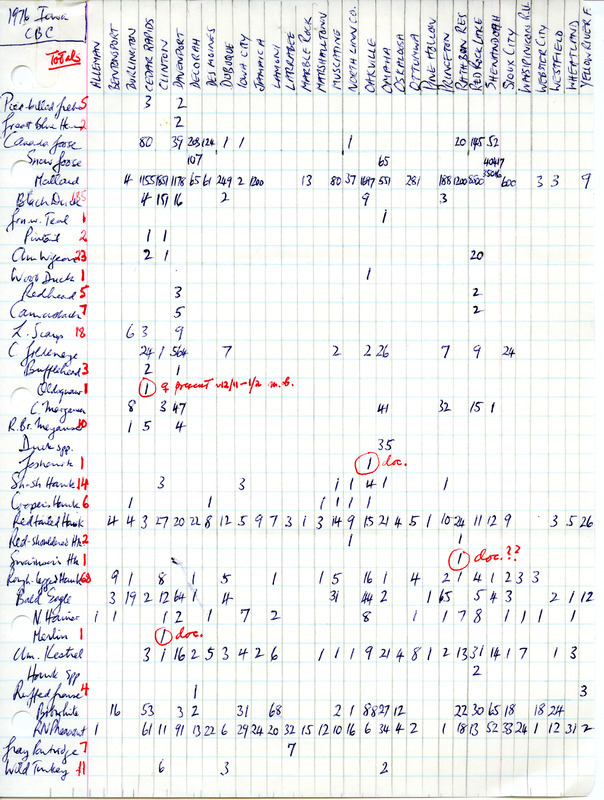 1976 Iowa
CBC
Totals
ALLEMAN
BENTONSPORT
BURLINGTON
CEDAR RAPIDS
CLINTON
DAVENPORT
DECORAH
DES MOINES
DUBUQUE
IOWA CITY
JAMAICA
LAMONI
LARRABEE
MARBLE ROCK
MARSHALLTOWN
MUSCATINE
NORTH LINN CO.
OAKVILLE
OMAHA
OSKALOOSA
OTTUMWA
PINE HOLLOW
PRINCETON
RATHBUN RES
RED ROCK LAKE
SHENANDOAH
SIOUX CITY
WAPSIPINICON RIV.
WEBSTER CITY
WESTFIELD
WHEATLAND
YELLOW RIVER F.
Pied-billed Grebe 5 2
Great Blue Heron 2 2
Canada Goose 80 39 208 124 1 1 1 20 145 52
Snow Goose 107 65
Mallard 4 1155 1851 1178 65 61 249 2 1200 13 80 37 1647 551 281 188 1200 600 3 3 9
Black Duck 185 4 151 16 2 9 3
Grn w. Teal 1 1
Pintail 2 1 1
Am Wigeon 23 2 1 20
Wood Duck 1 1
Redhead 5 3 2
Canvasback 7 5 2
L. Scaup 18 6 3 9
C Goldeneye 24 1 564 7 2 2 26 7 9 24
Bufflehead 3 2 1
Oldsquaw 1 1 ♀ present 12/11-1/2 m.b.
C. Merganser 8 3 47 41 32 15 1
R. Br. Merganser 10 1 5 4
Duck spp. 35
Goshawk 1 1 doc.
Sh-sh Hawk 14 3 3 1 1 4 1 1
Cooper's Hawk 6 1 1 1 1 1 1
Red tailed Hawk 4 4 3 27 20 22 8 12 5 9 7 3 1 3 14 9 15 21 4 5 1 10 24 11 12 9 3 5 26
Red-shouldered Hk 2 1 1
Swainson's Hk 1 1 doc.??
Rough-legged Hawk 68 9 1 8 1 5 1 1 5 16 1 4 2 1 4 1 2 3 3
Bald Eagle 3 19 2 12 64 1 4 31 44 2 1 65 5 4 3 2 1 12
N. Harrier 1 1 1 2 1 7 2 8 1 1 7 8 1 1 1 1
Merlin 1 1 doc.
Am. Kestrel 3 1 16 2 5 3 4 2 6 1 1 1 9 21 4 8 1 2 13 31 14 1 7 1 3
Hawk Spp 2
Ruffed Grouse 4 1 3
Bobwhite 16 53 3 2 31 68 2 1 88 27 12 22 30 65 18 18 24
RN Pheasant 1 61 11 91 13 22 6 29 24 20 32 15 12 10 16 6 34 4 2 1 18 13 52 33 24 1 12 31 2
Gray Partridge 7 7
Wild Turkey 11 6 3 2